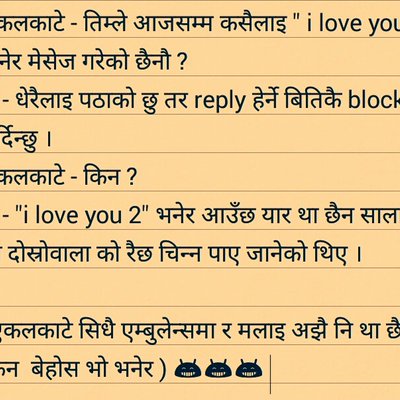 कलकाटे - तिम्ले आजसम्म कसैलाइ " i love you
नेर मेसेज गरेको छैनौ ?
- धेरैलाइ पठाको छु तर reply हेर्ने बितिकै block
र्दिन्छु ।
कलकाटे - किन ?
- "i love you 2" भनेर आउँछ यार था छैन साला
दोस्रोवाला को रैछ चिन्न पाए जानेको थिए ।
एकलकाटे सिधै एम्बुलेन्समा र मलाइ अझै नि था छै
न बेहोस भो भनेर ) 😂😂😂